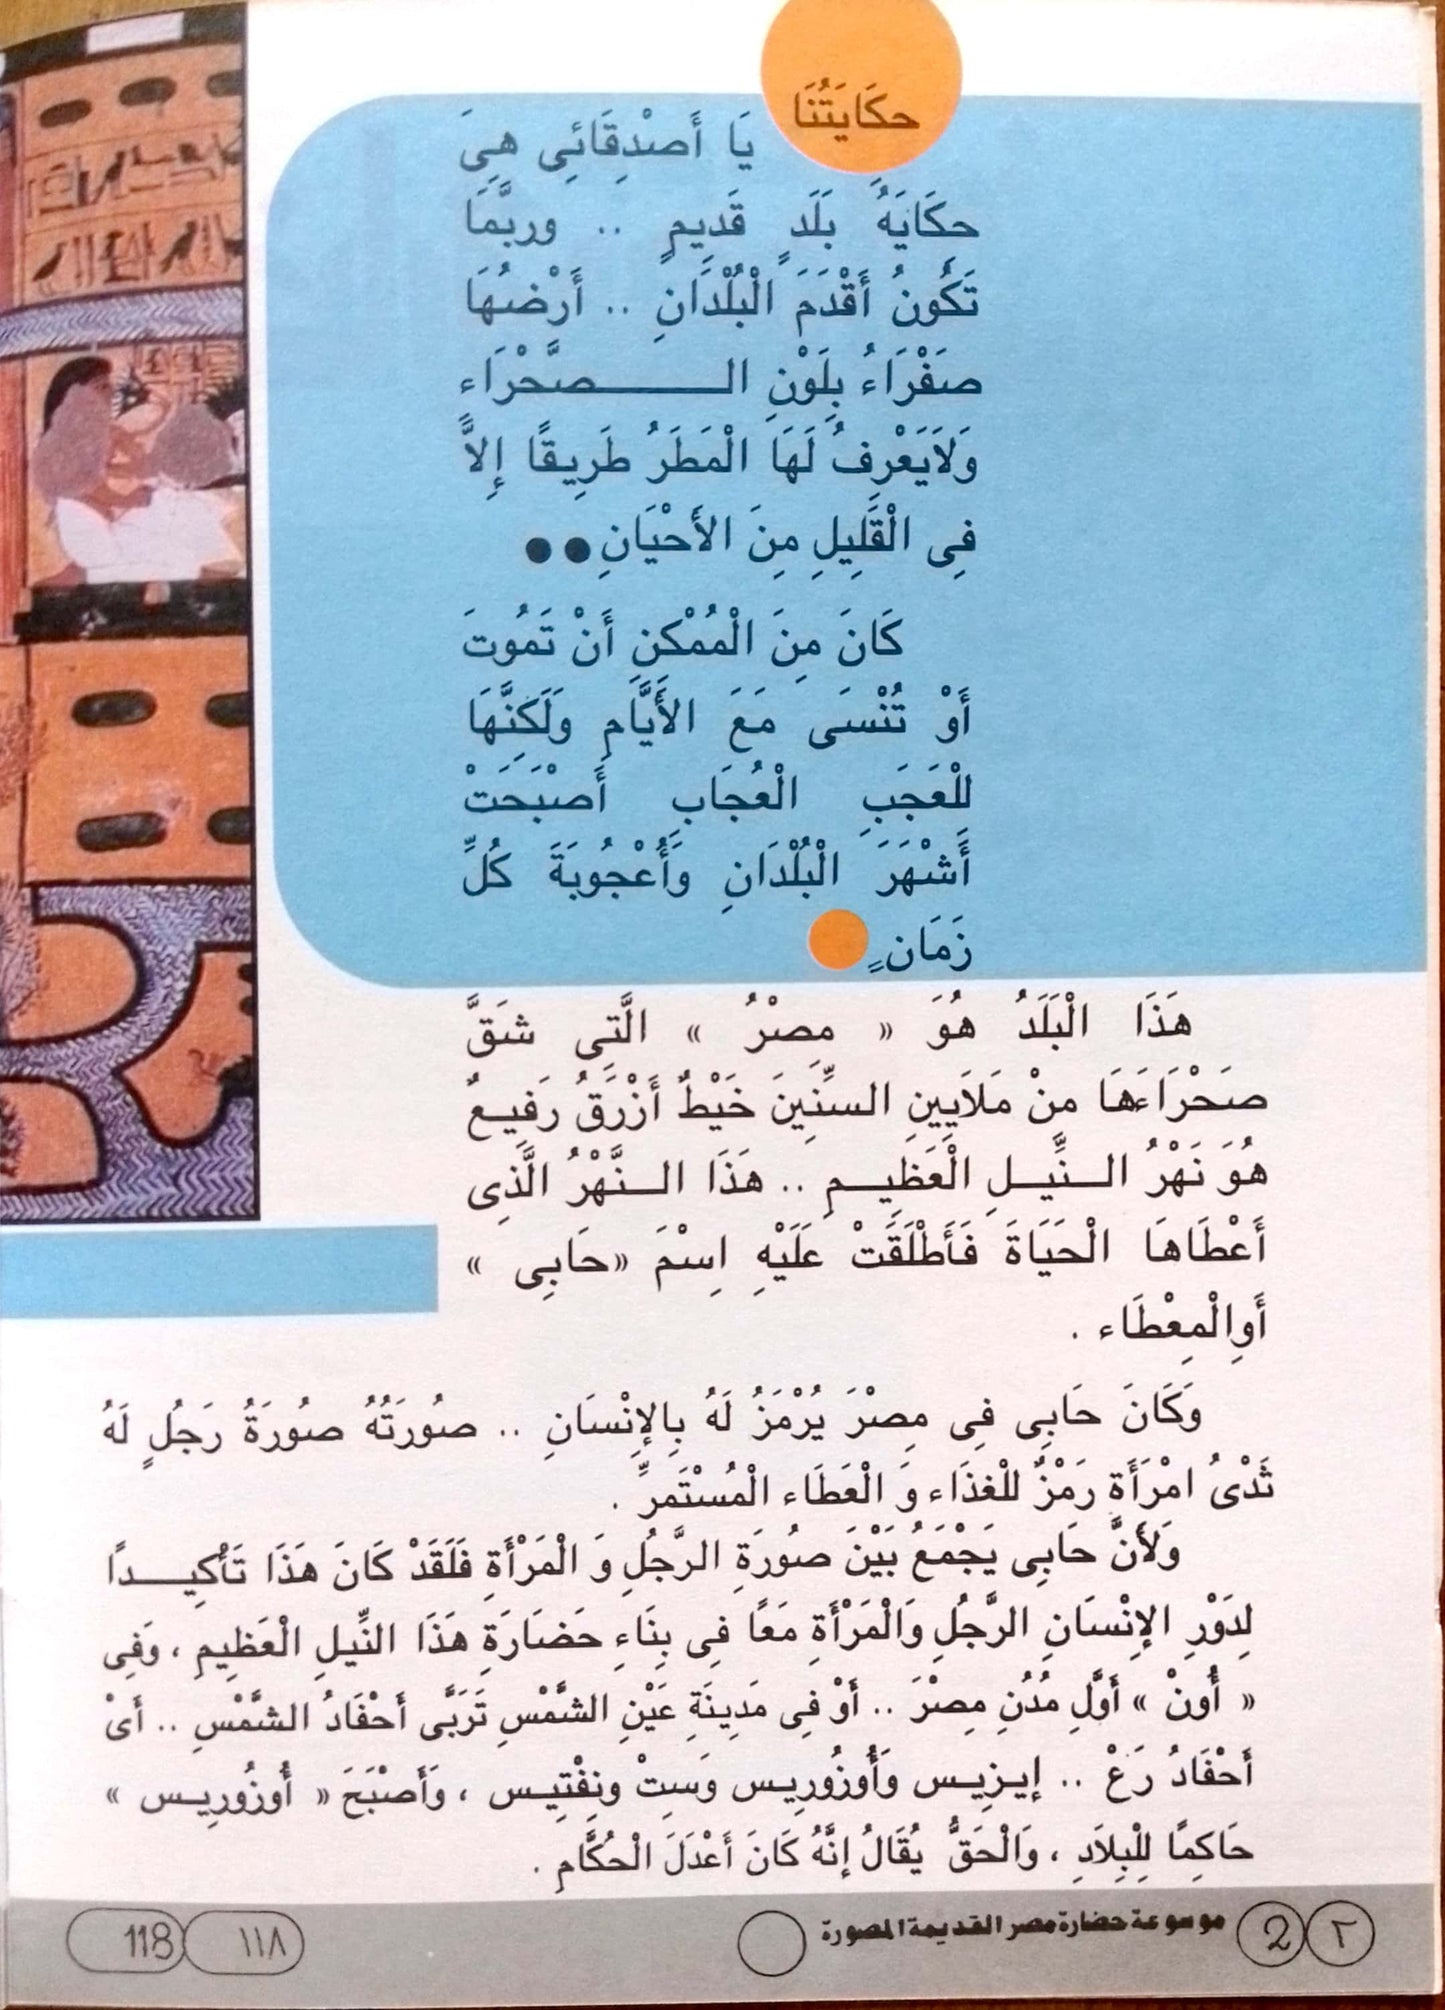 حكَايَتُنَا
يَا أَصْدِقَائِى هِىَ
حِكَايَةُ بَلَدٍ قَدِيمٍ .. وربَّمَا
تَكُونُ أَقْدَمَ الْبُلْدَانِ .. أَرْضُهَا
صَفْرَاءُ بِلَوْنِ الـــــــصَّحْرَاء
وَلاَيَعْرِفُ لَهَا الْمَطَرُ طَرِيقًا إِلاَّ
فِى الْقَلِيلِ مِنَ الأَحْيَانِ ●●
كَانَ مِنَ الْمُمْكِنِ أَنْ تَمُوتَ
أَوْ تُنْسَى مَعَ الأَيَّامِ وَلَكِنَّهَا
لْلْعَجَبِ الْعُجَاب أَصْبَحَتْ
أَشْهَرَ الْبُلْدَانِ وَأُعْجُوبَةَ كُلِّ
زَمَانٍ
هَذَا الْبَلَدُ هُوَ « مِصْرُ » الَّتِى شَقَّ
صَحْرَاءَهَا مِنْ مَلاَيِينِ السِّنِينَ خَيْطٌ أَزْرَقُ رَفِيعٌ
هُوَ نَهْرُ الـنِّيـلِ الْعَظِيـمِ .. هَذَا الـنَّهْرُ الَّذِى
أَعْطَاهَا الْحَيَاةَ فَأَطْلَقَتْ عَلَيْهِ اِسْمَ «حَابِى »
أَوِالْمِعْطَاء .
وَكَانَ حَابِى فِى مِصْرَ يُرْمَزُ لَهُ بِالإِنْسَانِ .. صُورَتُهُ صُورَةُ رَجُلٍ لَهُ
ثَدْىُ امْرَأَة رَمْزٌ للْغذَاء وَ الْعَطَاء الْمُسْتَمرِّ .
وَلأَنَّ حَابِى يَجْمَعُ بَيْنَ صُورَةِ الرَّجُلِ وَ الْمَرْأَةِ فَلَقَدْ كَانَ هَذَا تَأْكِيـــدًا
لِدَوْرِ الإِنْسَانِ الرَّجُلِ وَالْمَرْأَةِ مَعًا فِى بِنَاءِ حَضَارَةِ هَذَا النِّيلِ الْعَظِيمِ ، وَفِى
« أُونْ » أَوَّلِ مُدُنِ مِصْرَ .. أَوْ فِى مَدِينَةِ عَيْنِ الشَّمْسِ تَرَبَّى أَحْفَادُ الشَّمْسِ .. أَىْ
أَحْفَادُ رَعْ .. إيـزِيـس وَأُوزُورِيـس وَسِتْ ونِفْتِيـس ، وَأَصْبَحَ « أُوزُورِيـس »
حَاكِمًا لِلْبِلاَدِ ، وَالْحَقُّ يُقَالُ إنَّهُ كَانَ أَعْدَلَ الْحُكَّامِ .
٢ 2 موسوعة حضارة مصر القديمة المصورة ١١٨ 118